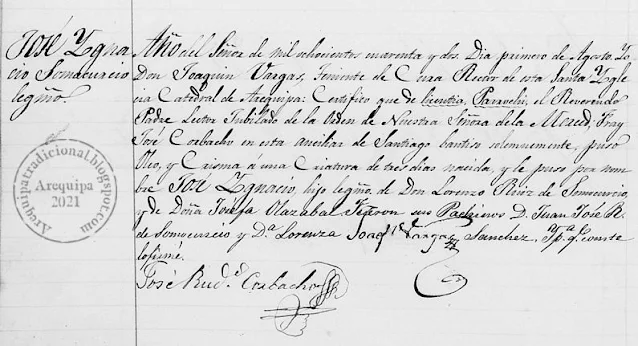 José Ygna
cio Somocurcio
legmo.
Año del Señor de mil ochocientos cuarenta y dos. Dia primero de Agosto. Yo
Don Joaquin Vargas, Teniente de Cura Rector de esta Santa Ygle
cia Catedral de Arequipa: Certifico que de licentia Parrochi, el Reverendo
Padre Lector Jubilado de la Orden de Nuestra Señora de la Merced, Fray
José Corbacho en esta ausiliar de Santiago bautiso solemnemente, puso
Oleo, y Crisma á una Criatura de tres dias nacida, y le puso por nom
bre José Ygnacio, hijo legmo. de Don Lorenzo Rios de Somocurcio,
y de Doña Josefa Olazabal. Fueron sus Padrinos D. Juan José R.
de Somocurcio y Da. Lorenza Sanchez, Ypa. q. conste
lo firmé.
Joaqn. Vargas
José Rudo. Corbacho
Arequipatradicional.blogspot.com
Arequipa
2021